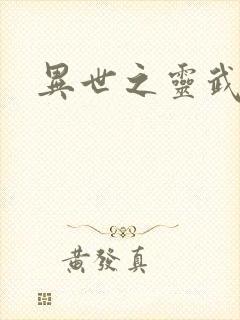 異世之靈武
黃發真